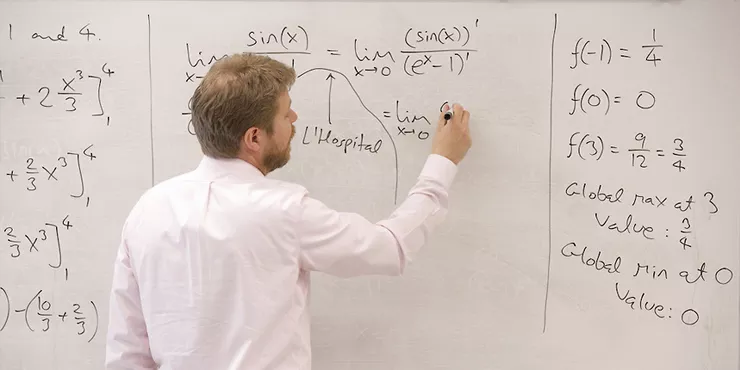 1 and 4.
+ 2 x³/3 ]₁⁴
+ 2/3 x³ ]₁⁴
2/3 x³ ]₁⁴
) - (10/3 + 2/3)
lim x→0 sin(x) / 1 = lim x→0 (sin(x))' / (eˣ - 1)'
= lim x→0
L'Hospital
f(-1) = 1/4
f(0) = 0
f(3) = 9/12 = 3/4
Global max at 3
Value: 3/4
Global Min at 0
Value: 0